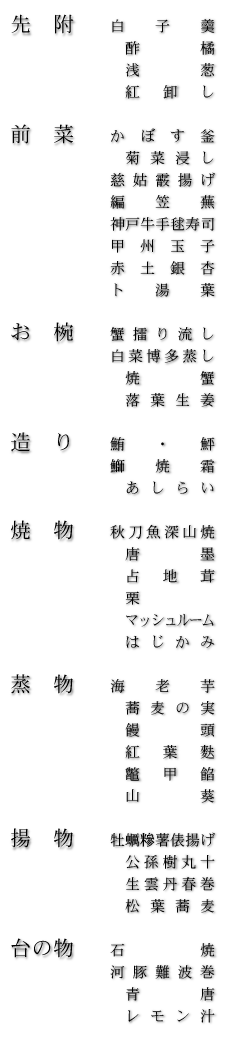 先附 白子羹
酢橘
浅葱
紅卸し
前菜 かぼす釜
菊菜浸し
慈姑霰揚げ
編笠蕪
神戸牛手毬寿司
甲州玉子
赤土銀杏
ト湯葉
お椀 蟹擂り流し
白菜博多蒸し
焼蟹
落葉生姜
造り 鮪・鮃
鰤焼霜
あしらい
焼物 秋刀魚深山焼
唐墨
占地茸
栗
マッシュルーム
はじかみ
蒸物 海老芋
蕎麦の実
饅頭
紅葉麩
鼈甲餡
山葵
揚物 牡蠣糝薯俵揚げ
公孫樹丸十
生雲丹春巻
松葉蕎麦
台の物 石焼
河豚難波巻
青唐
レモン汁